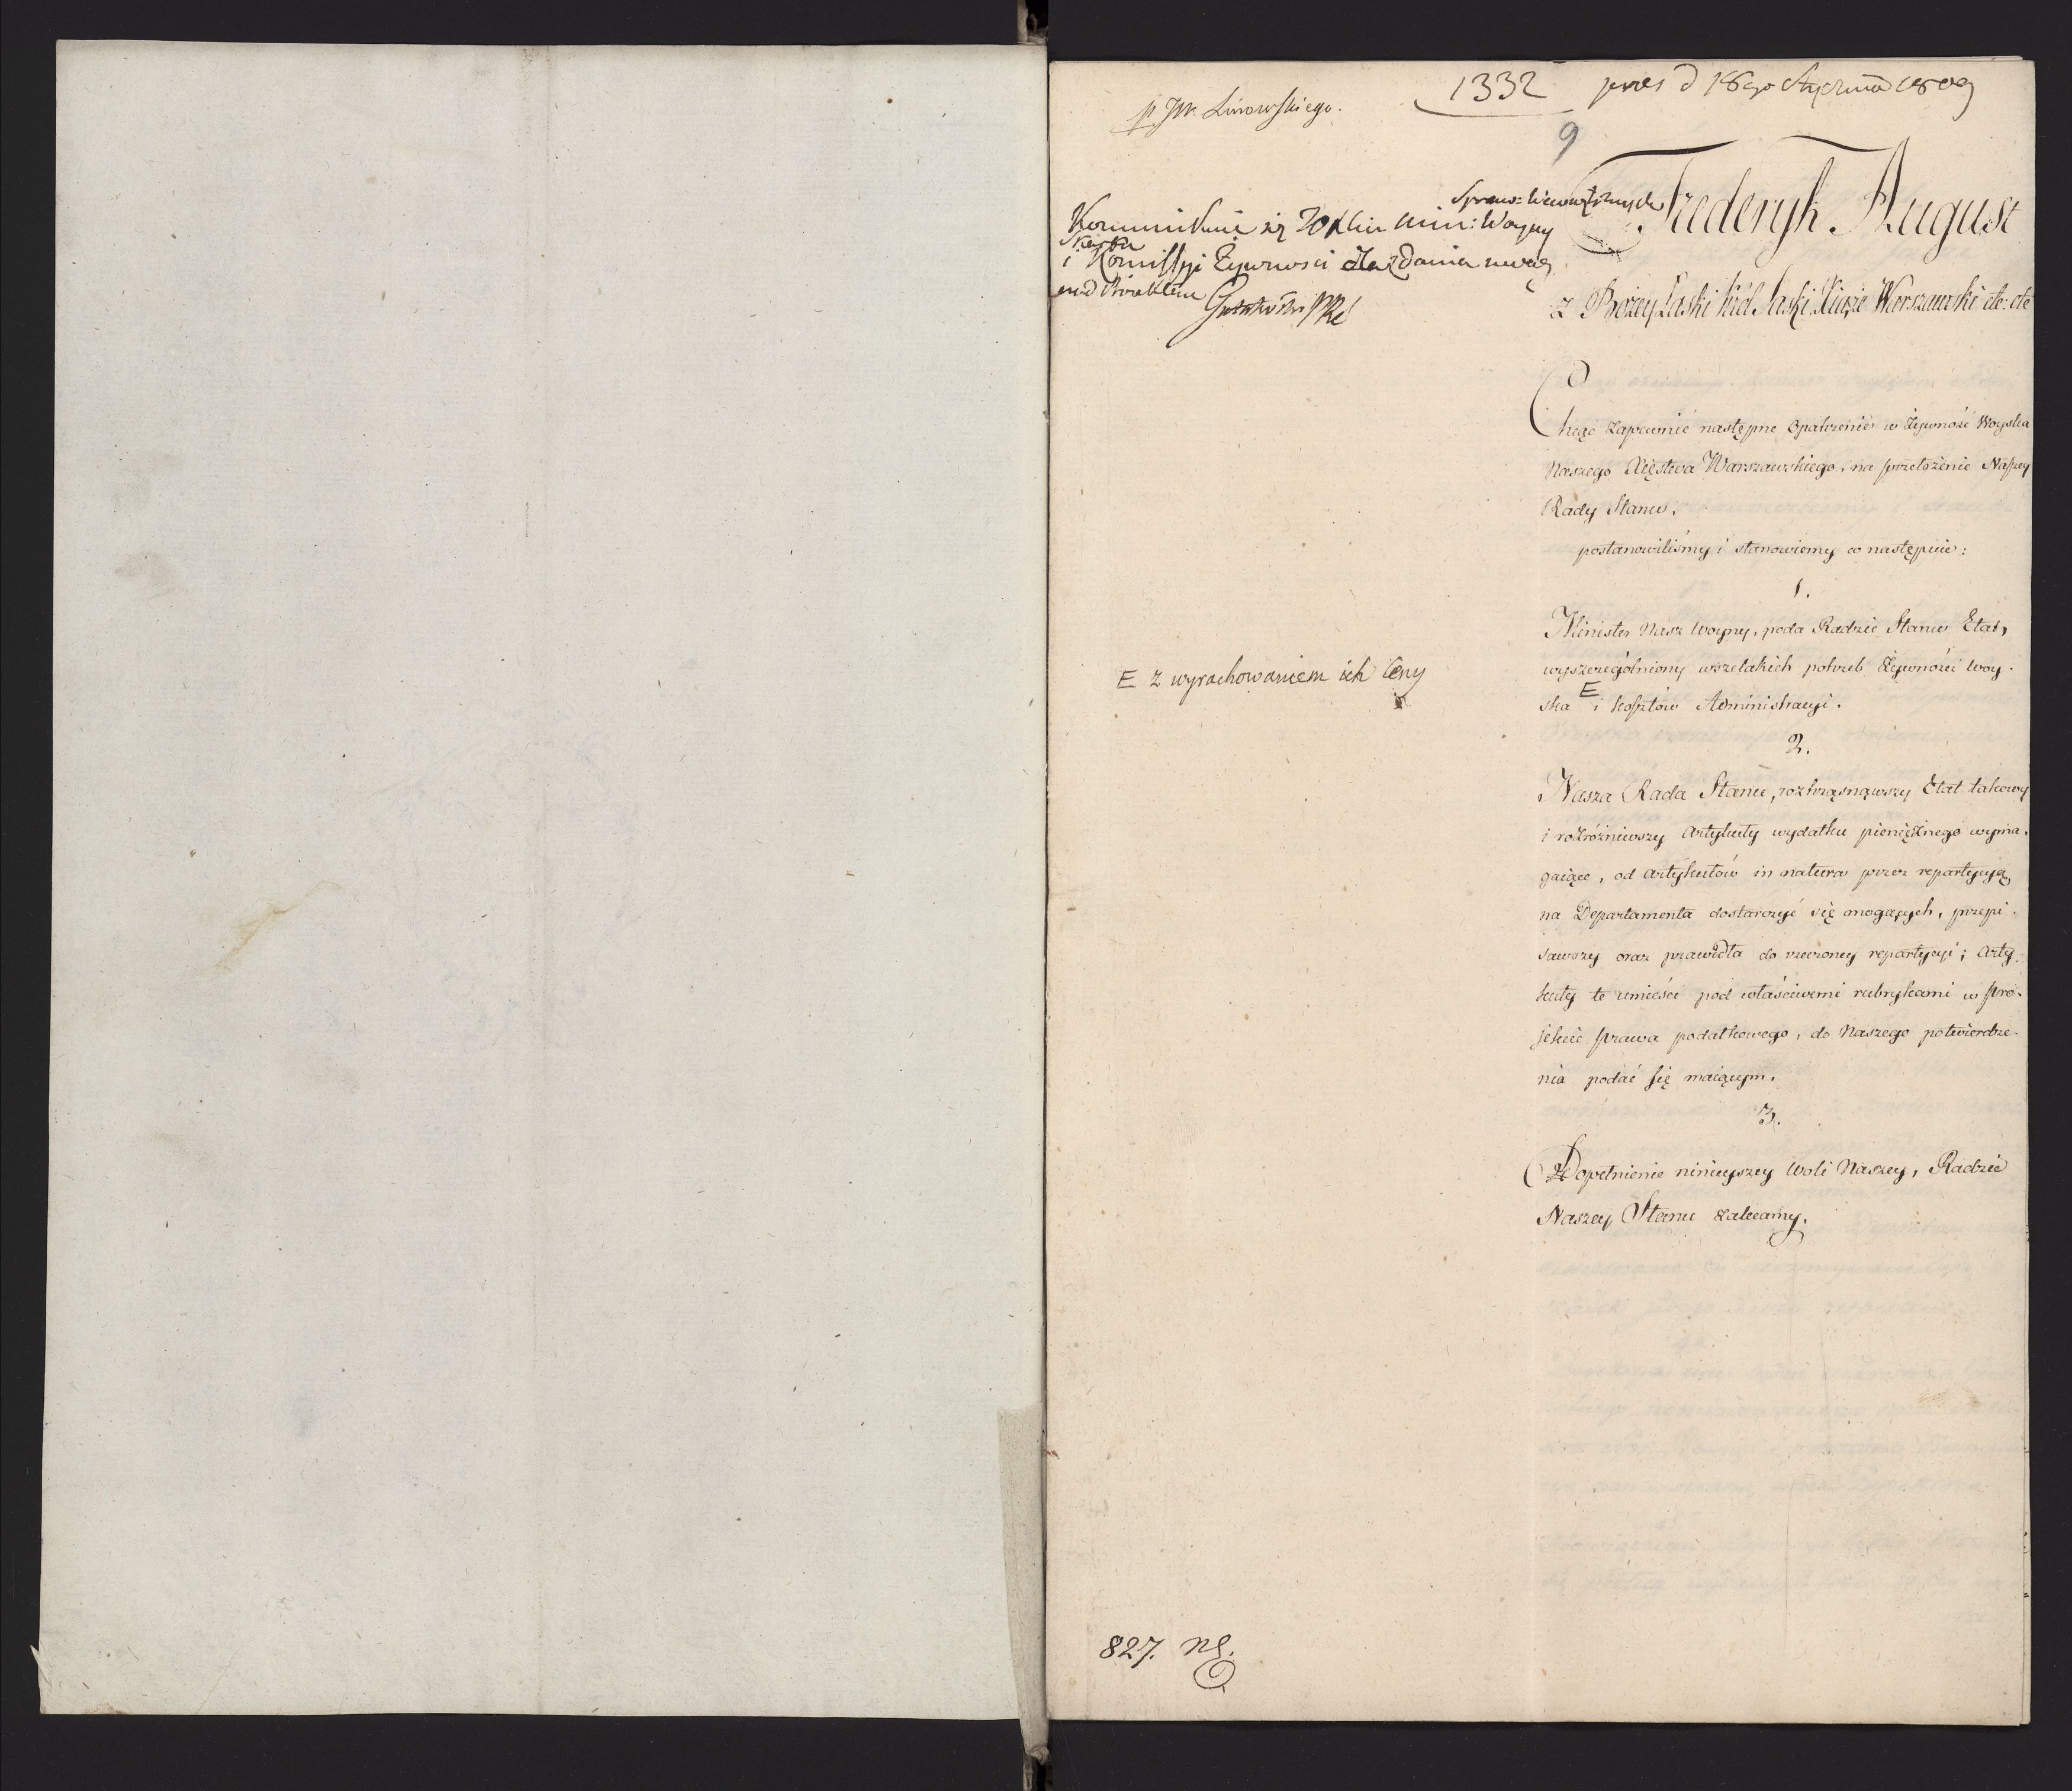 1332 pres d 18go Stycznia 1809
p JW. Linowskiego.
9
Spraw: Wewnętrznych
Kommunikuie się JO Min: Woyny
Skarbu
i Kommissyi Żywności dla zdania uwag
nad Proiektem Gutakowski PRS
Frederyk August
z Bożey Łaski Król Saski Xiąże Warszawski etc: etc
Chcąc zapewnić następne opatrzenie w żywność Woyska
Naszego Xięstwa Warszawskiego, na przełożenie Naszey
Rady Stanu,
postanowiliśmy i stanowiemy co następuie:
1.
Minister Nasz Woyny, poda Radzie Stanu Etat,
wyszczególniony wszelakich potrzeb Żywności Woy-
ska E i kosztów Administracyi.
E z wyrachowaniem ich Ceny
2.
Nasza Rada Stanu, roztrząsnąwszy Etat takowy
i rozróżniwszy Artykuły wydatku pieniężnego wyma-
gaiące, od Artykułów in natura przez repartycyą
na Departamenta dostarczyć się mogących, przepi-
sawszy oraz prawidła do rzeczoney repartycyi; Arty-
kuły te umieści pod właściwemi rubrykami w Pro-
jekcie Prawa podatkowego, do Naszego potwierdze-
nia podać się maiącym.
3.
Dopełnienie ninieyszey Woli Naszey, Radzie
Naszey Stanu zalecamy.
827.